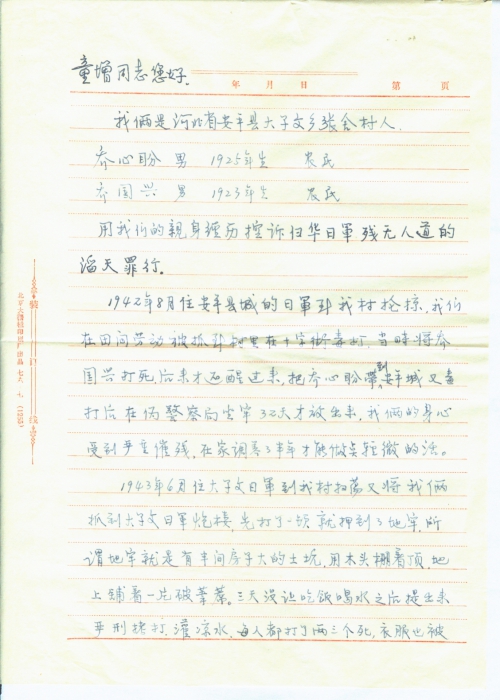 童增同志您好.
年 月 日
第 页
我俩是河北省安平县大子文乡张舍村人.
乔心盼 男 1925年生 农民
乔国兴 男 1923年生 农民
用我们的亲身经历控诉归华日軍残无人道的
滔天罪行.
1942年8月住安平县城的日軍到我村抢掠,我们
在田间劳动被抓到村里在十字街毒打,当时将乔
国兴打死,后来才苏醒过来,把乔心盼带到安平城又毒
打后在伪警察局坐牢32天才放出来,我俩的身心
受到严重摧残,在家调养3半年才能做点轻微的活.
1943年6月住大子文日軍到我村扫荡又将我俩
抓到大子文日軍炮楼,先打了一顿就押到了地牢,所
谓地牢就是有半间房子大的土坑,用木头棚着顶,地
上铺着一片破苇蓆.三天没让吃饭喝水之后提出来
严刑拷打,灌凉水,每人都打了两三个死,衣服也被
装 订 线